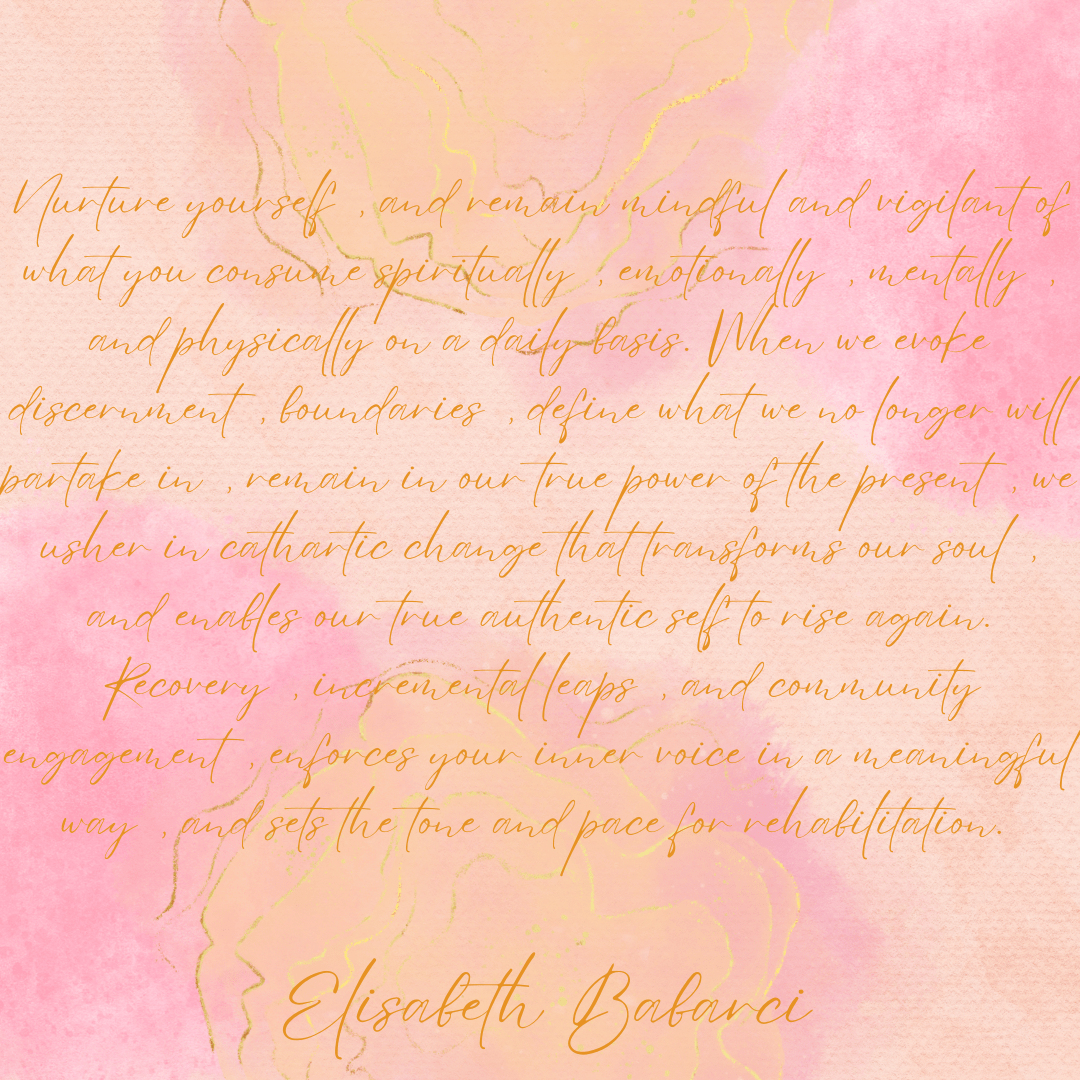 Nurture yourself , and remain mindful and vigilant of
what you consume spiritually , emotionally , mentally ,
and physically on a daily basis. When we evoke
discernment , boundaries , define what we no longer will
partake in , remain in our true power of the present , we
usher in cathartic change that transforms our soul ,
and enables our true authentic self to rise again.
Recovery , incremental leaps , and community
engagement , enforces your inner voice in a meaningful
way , and sets the tone and pace for rehabilitation.
Elisabeth Babarci